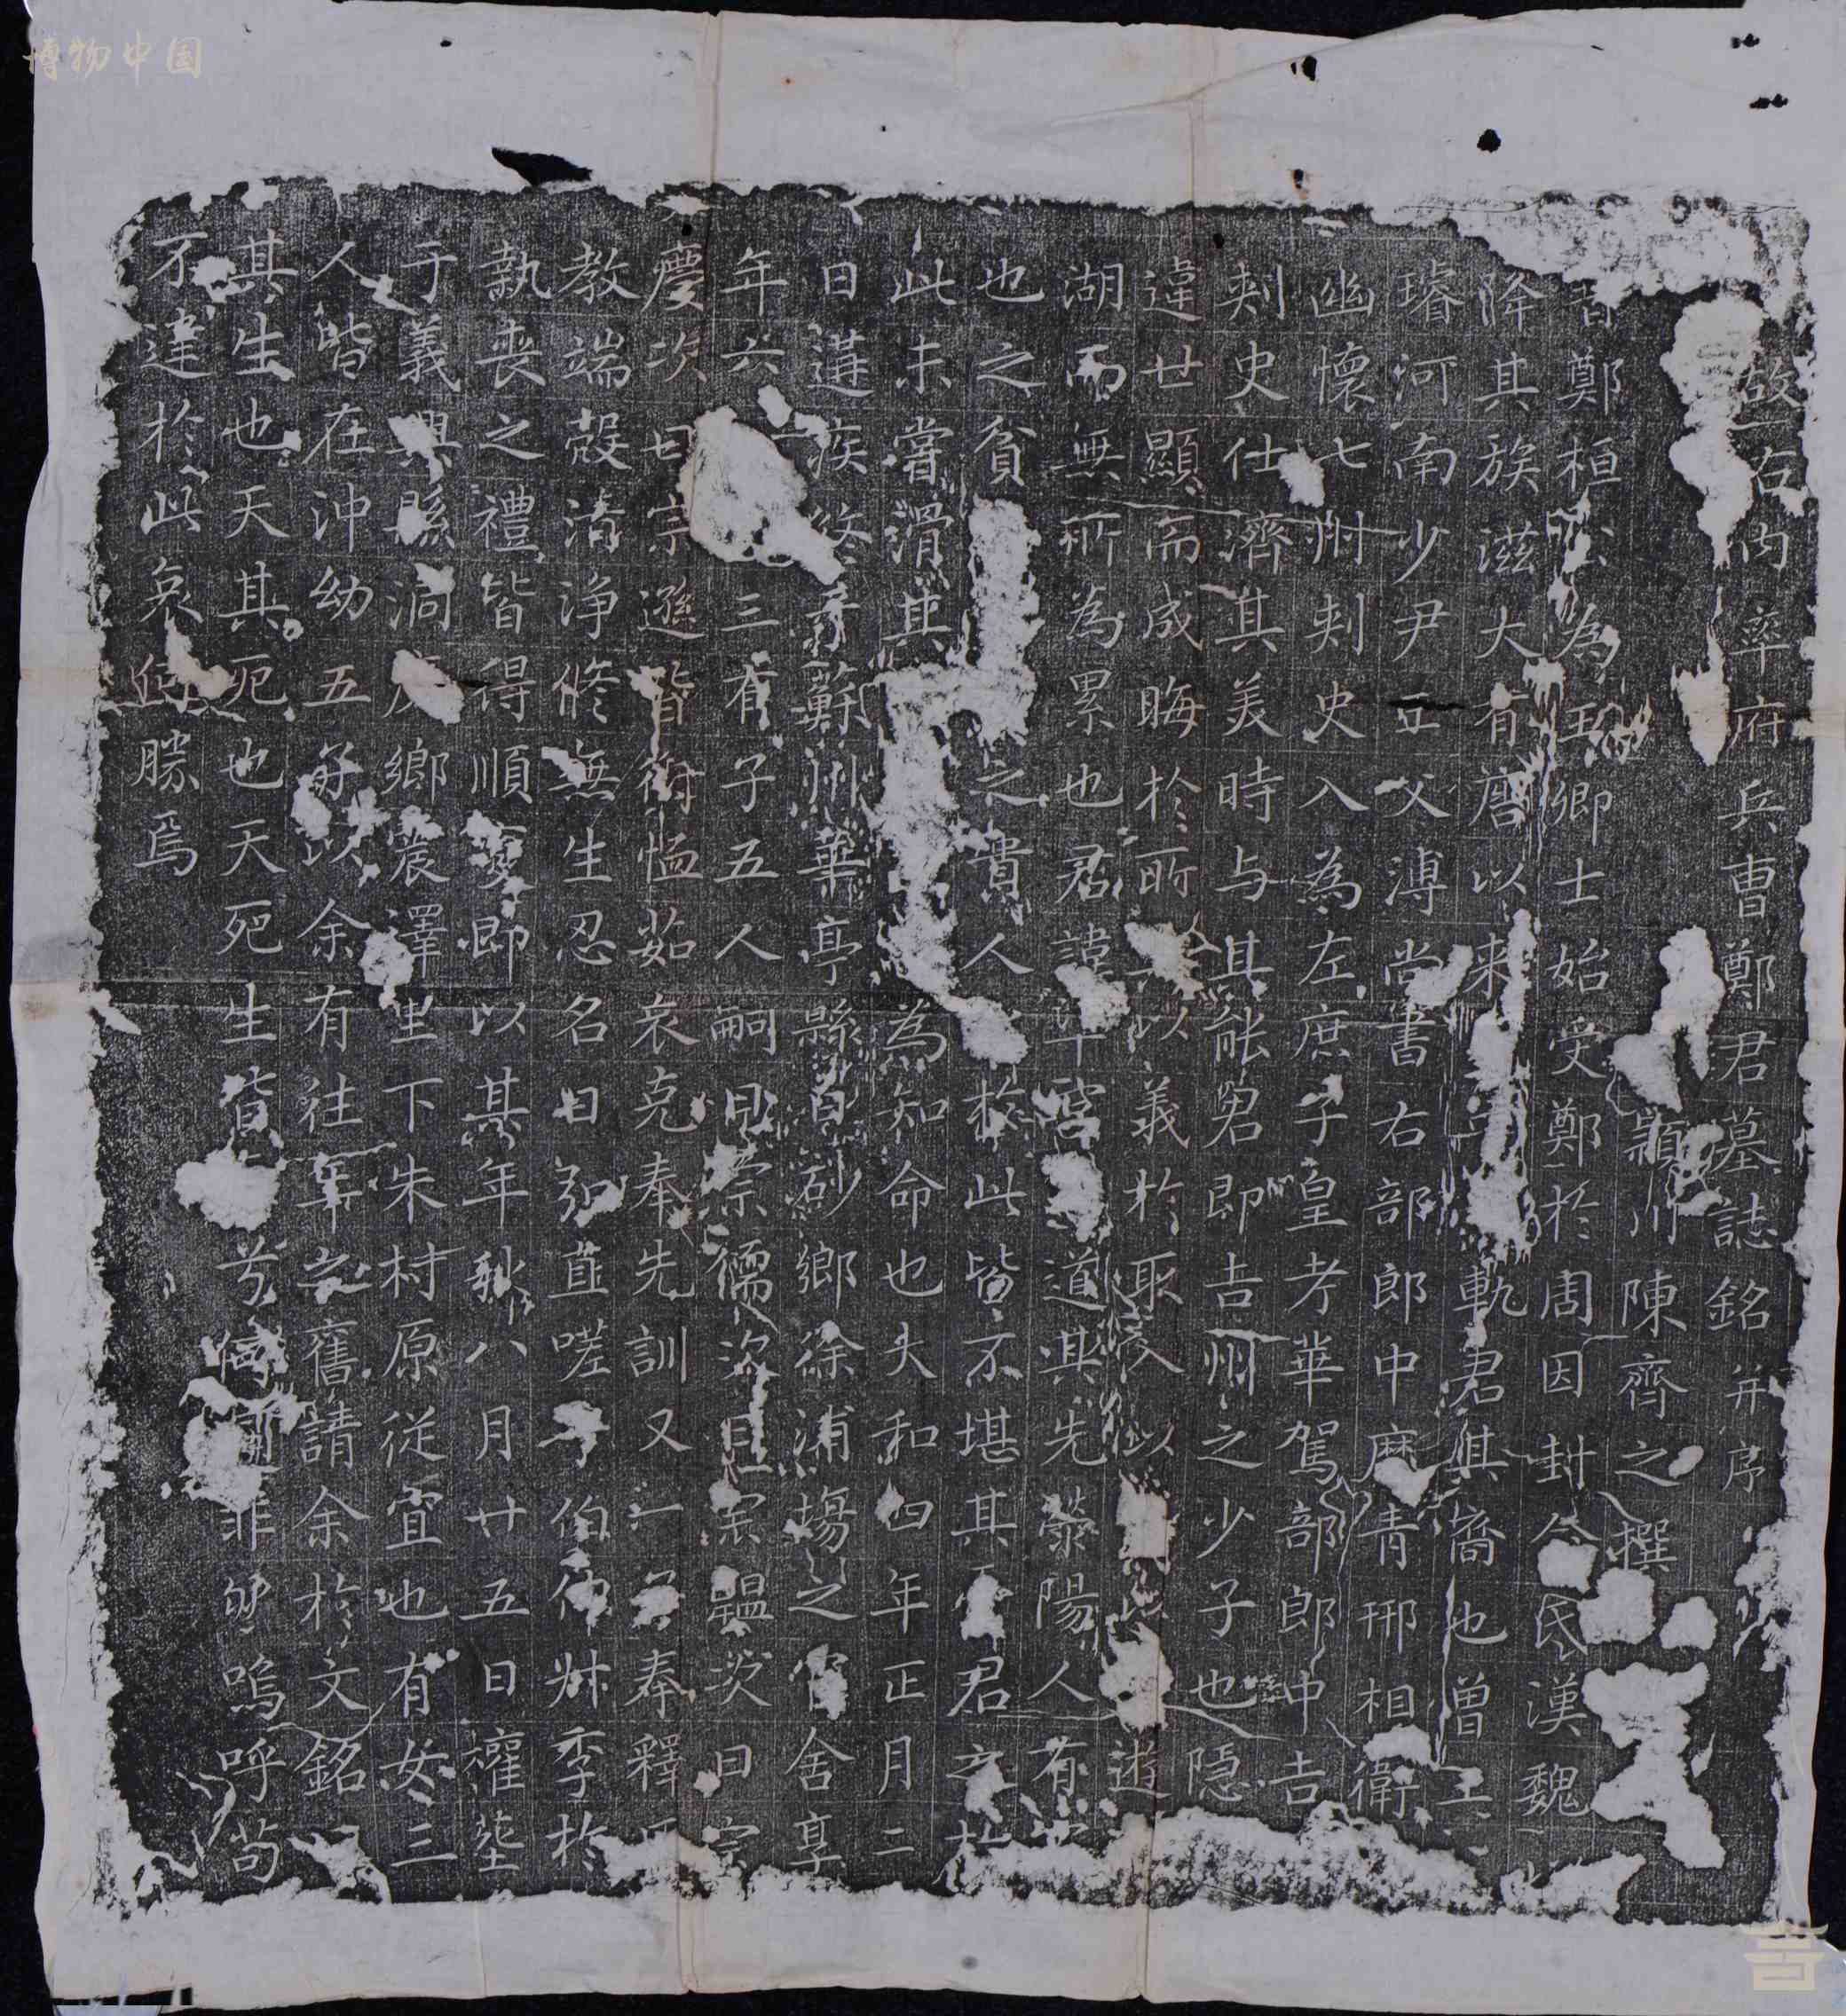 博物中国
故右内率府兵曹鄭君墓誌銘并序
潁川陳齊之撰
昔鄭桓公為王卿士始受鄭於周因封令氏漢魏
降其族滋大有唐以来軌君其裔也曾
璿河南少尹父溥尚書右部郎中麻青邢相衛
幽懷七州刺史入為左庶子皇考華駕部郎中吉
刺史仕濟其美時与其能君即吉州之少子也隱
違世顯而成晦於所以義於取以遊
湖而無所為累也君諱宮道其先滎陽人有
也之貧之貴人於此皆不堪其君之
此未嘗滑其為知命也大和四年正月二
日遘疾終于蘇州華亭縣白砂鄉徐浦場之官舍享
年六三有子五人嗣曰宗儒次曰宗韞次曰宗
慶次曰宗遜皆銜恤茹哀克奉先訓又一子奉釋
教端愨清浄修無生忍名曰弘直嗟乎伯仲叔季於
執喪之禮皆得順變即以其年秋八月廿五日權葬
于義興縣洞鄉震澤里下朱村原從宜也有女三
人皆在沖幼五弟以余有往年之舊請余於文銘
其生也天其死也天死生皆兮何非嗚呼苟
不達於此哀何勝焉